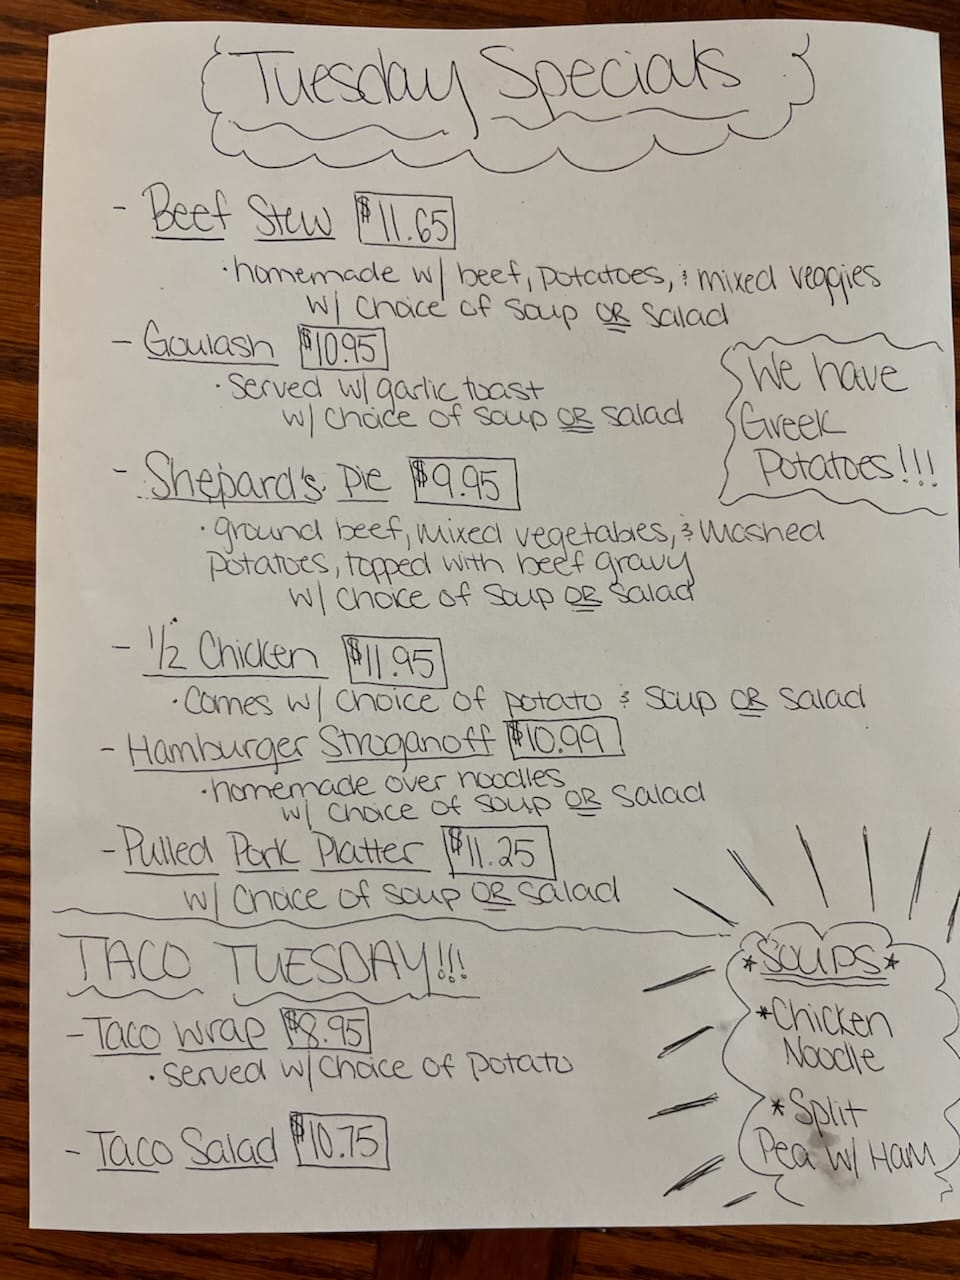 Tuesday Specials
- Beef Stew $11.65
· homemade w/ beef, potatoes, & mixed veggies
w/ choice of soup OR salad
- Goulash $10.95
· served w/ garlic toast
w/ choice of soup OR salad
We have
Greek
Potatoes!!!
- Shepard's Pie $9.95
· ground beef, mixed vegetables, & mashed
potatoes, topped with beef gravy
w/ choice of soup OR salad
- 1/2 Chicken $11.95
· comes w/ choice of potato & soup OR salad
- Hamburger Stroganoff $10.99
· homemade over noodles
w/ choice of soup OR salad
- Pulled Pork Platter $11.25
w/ choice of soup OR salad
TACO TUESDAY!!!
- Taco Wrap $8.95
· served w/ choice of potato
- Taco Salad $10.75
*Soups*
*Chicken
Noodle
*Split
Pea w/ Ham